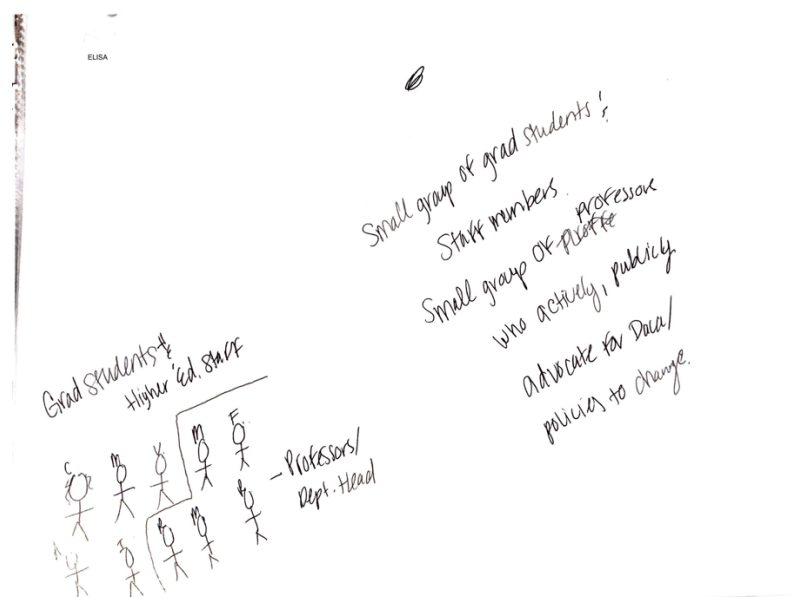 ELISA
Small group of grad students &
Staff members.
Small group of professors
who actively, publicly
advocate for Daca/
policies to change.
Grad students &
Higher Ed. Staff
C M V M F
- Professors/
Dept. Head
M